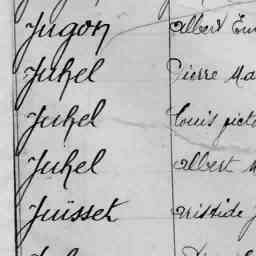 Jugon Albert
Juhel Pierre
Juhel Louis
Juhel Albert
Juïsset Aristide